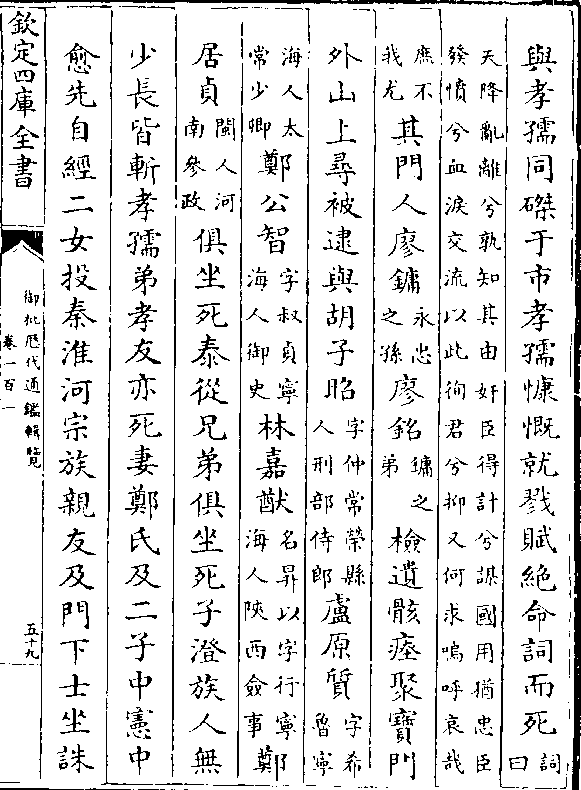 與孝孺同磔于市孝孺慷慨就戮賦絶命詞而死詞曰
天降亂離兮孰知其由奸臣得計兮謀國用猶忠臣
發憤兮血淚交流以此徇君兮抑又何求嗚呼哀哉
庶不我尤其門人廖鏞永忠之孫廖銘鏞之弟檢遺骸瘞聚寶門
外山上尋被逮與胡子昭字仲常榮縣人刑部侍郎盧原質字希魯寧
海人太常少卿鄭公智字叔貞寧海人御史林嘉猷名昇以字行寧海人陝西僉事鄭
居貞閩人河南參政俱坐死泰從兄弟俱坐死子澄族人無
少長皆斬孝孺弟孝友亦死妻鄭氏及二子中憲中
愈先自經二女投秦淮河宗族親友及門下士坐誅
欽定四庫全書
御批歷代通鑑輯覽
卷一百一
五十九